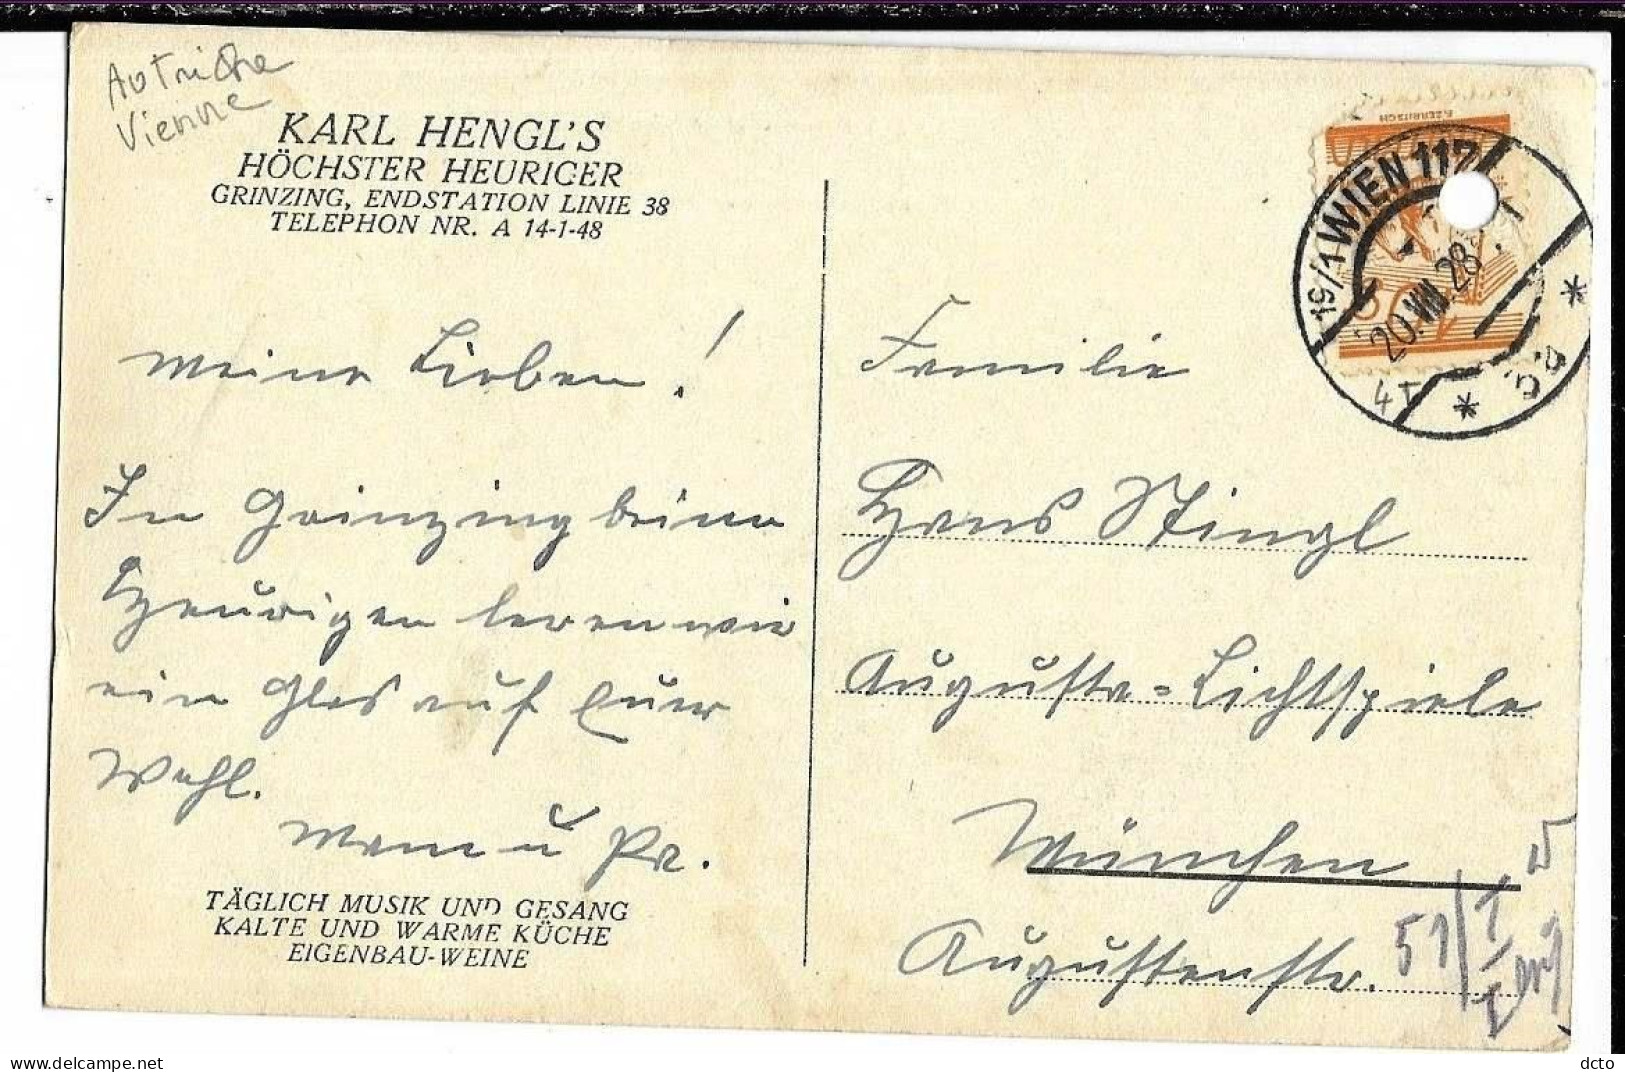 Autriche
Vienne
KARL HENGL'S
HÖCHSTER HEURIGER
GRINZING, ENDSTATION LINIE 38
TELEPHON NR. A 14-1-48
Meine Lieben!
In Grinzing beim
Heurigen leeren wir
ein Glas auf Euer
Wohl.
Mama u Pa.
TÄGLICH MUSIK UND GESANG
KALTE UND WARME KÜCHE
EIGENBAU-WEINE
F.ZERRITSCH
19/1 WIEN 117
20.VIII.28
Familie
Hans Stingl
Augusta=Lichtspiele
München
Augustenstr.
51/I
dcto